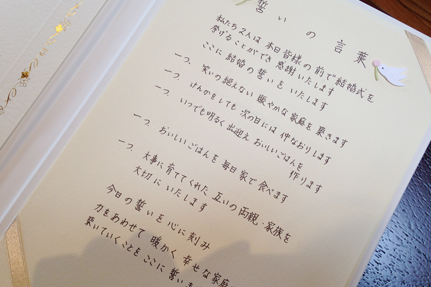 誓いの言葉
私たち2人は 本日 皆様の前で結婚式を
挙げることができ 感謝いたします
ここに 結婚の誓いを いたします
一つ、笑いの絶えない 賑やかな家庭を 築きます
一つ、けんかをしても 次の日には 仲なおりします
一つ、いつでも明るく出迎え おいしいごはんを
作ります
一つ、おいしいごはんを 毎日 家で 食べます
一つ、大事に育ててくれた 互いの両親・家族を
大切に いたします
今日の 誓いを 心に刻み
力をあわせて 暖かく 幸せな家庭
築いていくことを ここに 誓いま